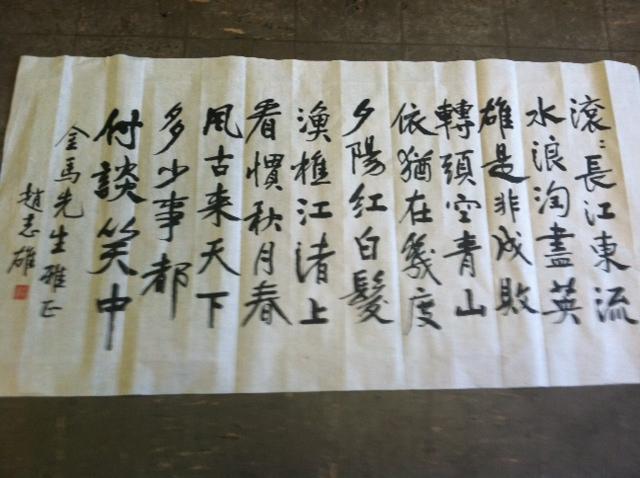 滾〻長江東流
水浪淘盡英
雄是非成敗
轉頭空青山
依猶在幾度
夕陽紅白髮
漁樵江渚上
看慣秋月春
風古来天下
多少事都
付談笑中
金馬先生雅正
趙志雄